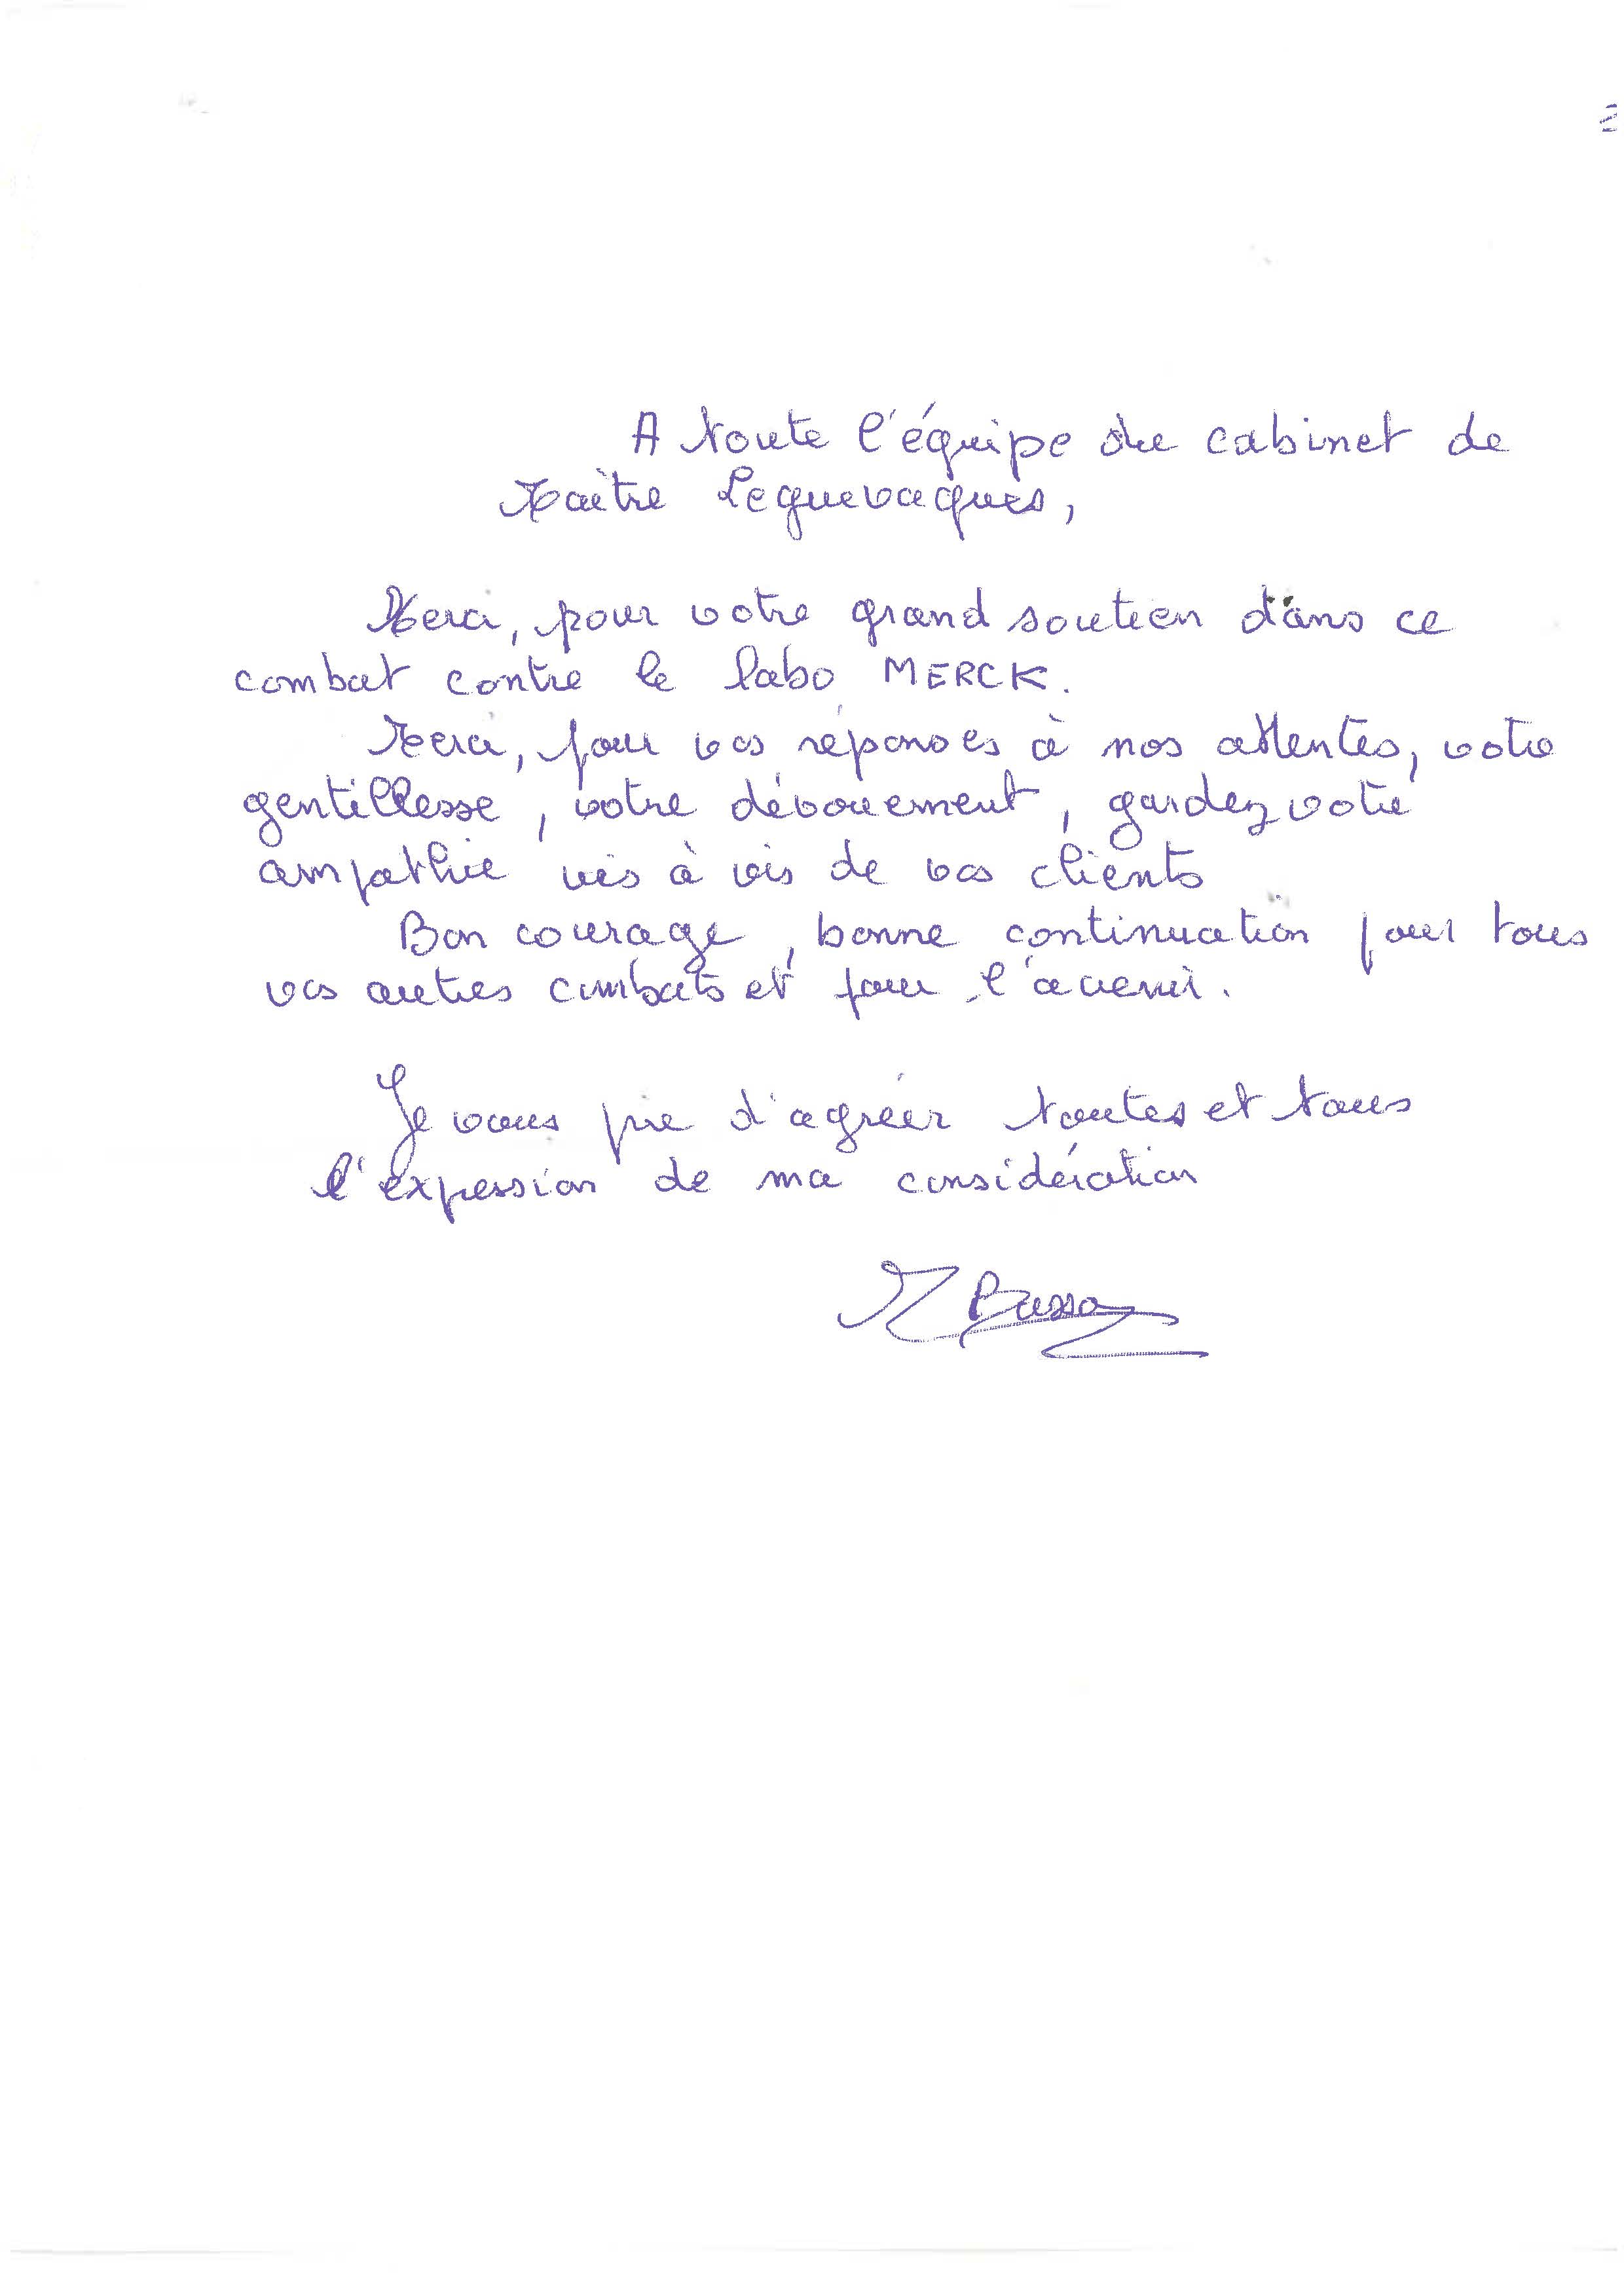 A toute l'équipe du cabinet de
Maître Leguevaques,
Merci, pour votre grand soutien dans ce
combat contre le labo MERCK.
Merci, pour vos réponses à nos attentes, votre
gentillesse, votre dévouement, gardez votre
ampathie vis à vis de vos clients
Bon courage, bonne continuation pour tous
vos autres combats et pour l'avenir.
Je vous prie d'agréer toutes et tous
l'expession de ma considération